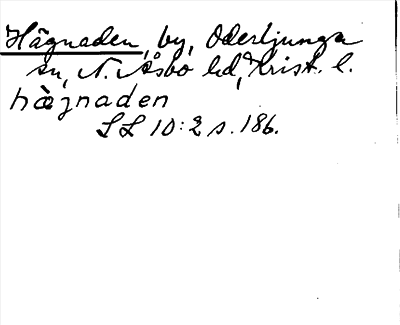 Hägnaden, by, Oderljunga
sn, N. Åsbo hd, Krist. l.
hàgnaden
SL 10:2 s. 186.